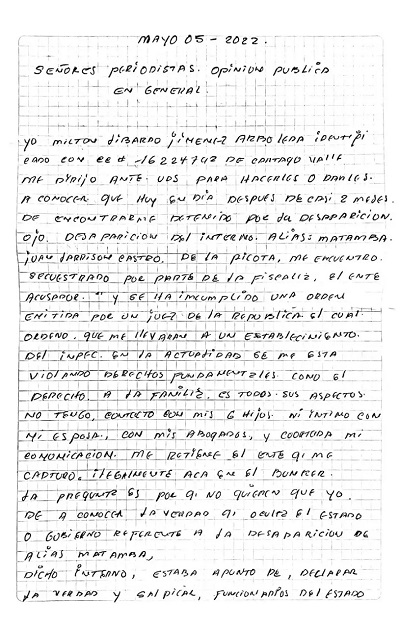 MAYO 05 - 2022.
SEÑORES PERIODISTAS. OPINION PUBLICA
EN GENERAL.
YO MILTON LIBARDO JIMENEZ ARBOLEDA IDENTIFI
CADO CON CC # -16224742 DE CARTAGO VALLE
ME DIRIJO ANTE. UDS PARA HACERLES O DARLES.
A CONOCER QUE HOY EN DIA DESPUES DE CASI 2 MESES.
DE ENCONTRARME DETENIDO POR LA DESAPARICION.
OJO. DESAPARICION DEL INTERNO. ALIAS: MATAMBA.
JUAN LARRISON CASTRO. DE LA PICOTA, ME ENCUENTRO.
SECUESTRADO POR PARTE DE LA FISCALIZ, EL ENTE
ACUSADOR. " Y SE HA IMCUMPLIDO UNA ORDEN
EMITIDA POR UN JUEZ DE LA REPUBLICA EL CUAL
ORDENO. QUE ME LLEVARAN A UN ESTABLECIMIENTO.
DEL INPEC. EN LA ACTUALIDAD SE ME ESTA
VIOLANDO DERECHOS FUNDAMENTALES. COMO EL
DERECHO. A LA FAMILIZ, ES TODOS. SUS ASPECTOS.
NO TENGO, CONTACTO CON MIS 6 HIJOS. NI INTIMO CON
MI ESPOSA, CON MIS ABOGADOS, Y COORTADA MI
COMUNICACION. ME RETIENE EL ENTE QI ME
CAPTURO, ILEGALMENTE ACA EN EL BUNKER.
LA PREGUNTA ES POR QI NO QUIEREN QUE YO.
DE A CONOCER LA VERDAD QI OCULTA EL ESTADO
O GOBIERNO REFERENTE A LA DESAPARICION DE
ALIAS MATAMBA,
DICHO INTERNO, ESTABA APUNTO DE, DECLARAR
LA VERDAD Y SALPICAR, FUNCIONARIOS DEL ESTADO